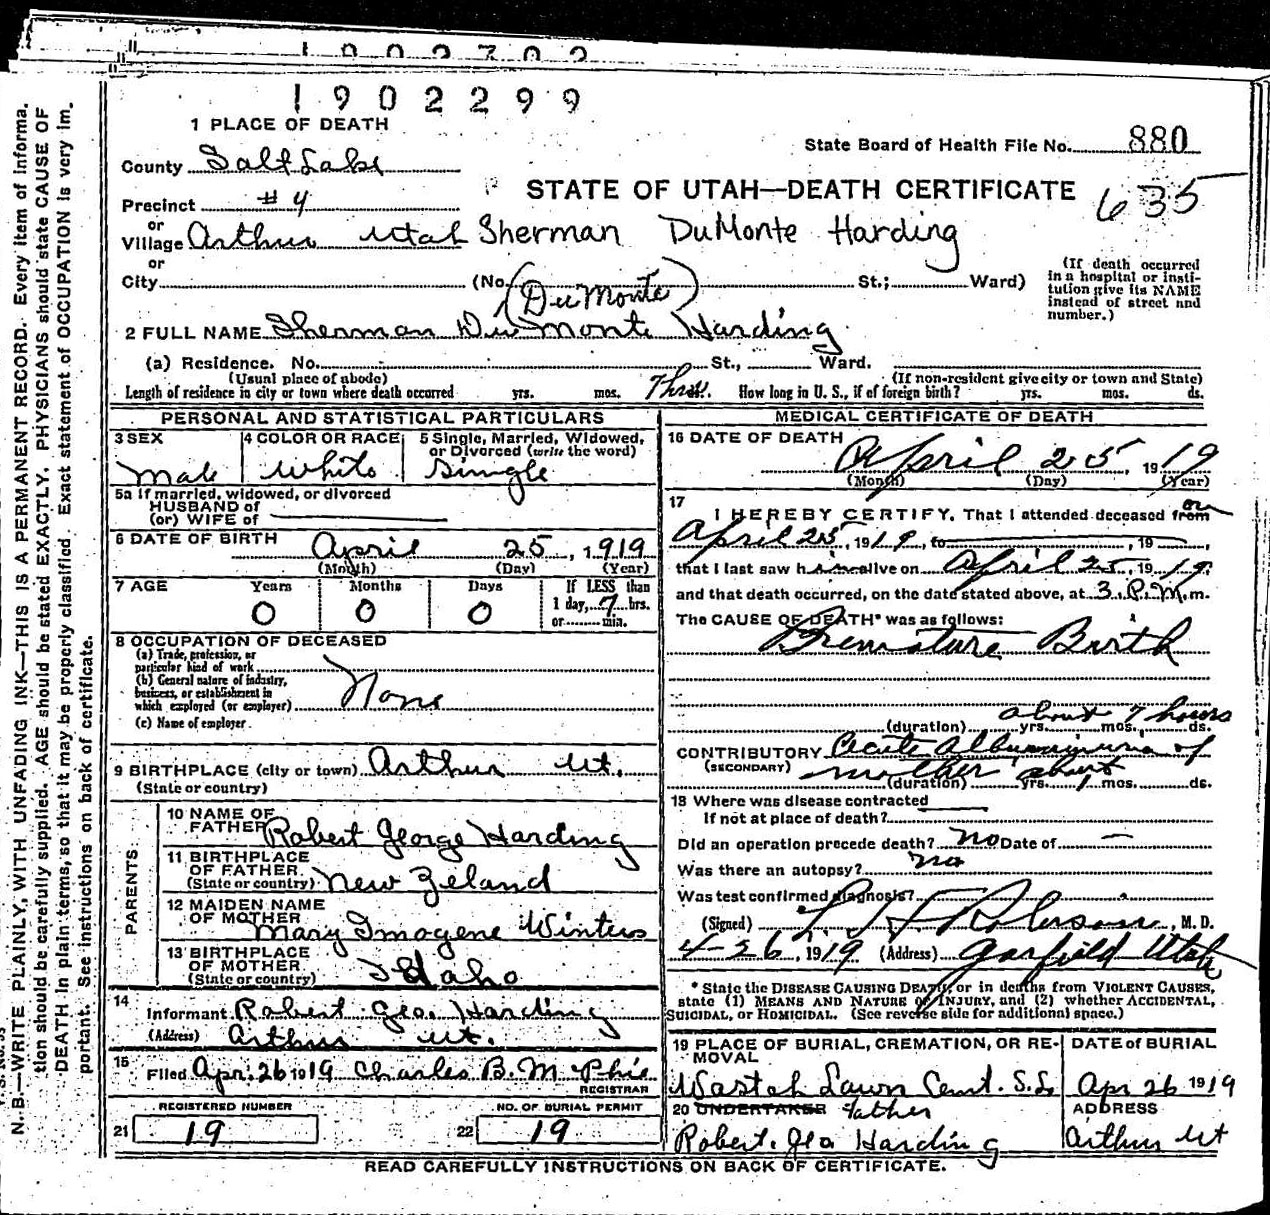 1902702
1902299
1 PLACE OF DEATH
State Board of Health File No. 880
County Salt Lake
STATE OF UTAH—DEATH CERTIFICATE 635
Precinct #4
or
Village Arthur Utah Sherman DuMonte Harding
or
City (No. St.; Ward)
(If death occurred in a hospital or institution give its NAME instead of street and number.)
(DuMonte)
2 FULL NAME Sherman Du Monte Harding
(a) Residence. No. St., Ward.
(Usual place of abode) (If non-resident give city or town and State)
Length of residence in city or town where death occurred yrs. mos. 7 hrs. ds. How long in U. S., if of foreign birth? yrs. mos. ds.
PERSONAL AND STATISTICAL PARTICULARS
3 SEX
Male
4 COLOR OR RACE
White
5 Single, Married, Widowed, or Divorced (write the word)
Single
5a If married, widowed, or divorced
HUSBAND of
(or) WIFE of
6 DATE OF BIRTH
April 25, 1919
(Month) (Day) (Year)
7 AGE
Years Months Days
0 0 0
If LESS than
1 day, 7 hrs.
or min.
8 OCCUPATION OF DECEASED
(a) Trade, profession, or
particular kind of work
(b) General nature of industry,
business, or establishment in
which employed (or employer) None
(c) Name of employer
9 BIRTHPLACE (city or town) Arthur Ut.
(State or country)
PARENTS
10 NAME OF
FATHER Robert George Harding
11 BIRTHPLACE
OF FATHER
(State or country) New Zeland
12 MAIDEN NAME
OF MOTHER
Mary Imogene Winters
13 BIRTHPLACE
OF MOTHER
(State or country) Idaho
14
Informant Robert Geo. Harding
(Address) Arthur Ut.
15
Filed Apr. 26 1919 Charles B. M Phie
REGISTRAR
REGISTERED NUMBER
21 19
NO. OF BURIAL PERMIT
22 19
MEDICAL CERTIFICATE OF DEATH
16 DATE OF DEATH
April 25, 1919
(Month) (Day) (Year)
17
I HEREBY CERTIFY, That I attended deceased from on
April 25, 1919, to , 19 ,
that I last saw him alive on April 25, 1919,
and that death occurred, on the date stated above, at 3 P.M. m.
The CAUSE OF DEATH* was as follows:
Premature Birth
about 7 hours
(duration) yrs. mos. ds.
CONTRIBUTORY Acute Albuminuria of
(SECONDARY) mother about
(duration) yrs. 1 mos. ds.
18 Where was disease contracted
If not at place of death?
Did an operation precede death? no Date of —
Was there an autopsy? no
Was test confirmed diagnosis?
(Signed) Roberson, M. D.
4-26, 1919 (Address) Garfield Utah
* State the DISEASE CAUSING DEATH, or in deaths from VIOLENT CAUSES,
state (1) MEANS AND NATURE OF INJURY, and (2) whether ACCIDENTAL,
SUICIDAL, or HOMICIDAL. (See reverse side for additional space.)
19 PLACE OF BURIAL, CREMATION, OR REMOVAL
Wastah Lawn Cemt. S.L.
DATE of BURIAL
Apr 26 1919
20 UNDERTAKER father
Robert. Geo Harding
ADDRESS
Arthur Ut
READ CAREFULLY INSTRUCTIONS ON BACK OF CERTIFICATE.
N. B.—WRITE PLAINLY, WITH UNFADING INK—THIS IS A PERMANENT RECORD. Every item of informa.
tion should be carefully supplied. AGE should be stated EXACTLY. PHYSICIANS should state CAUSE OF
DEATH in plain terms, so that it may be properly classified. Exact statement of OCCUPATION is very im.
portant. See instructions on back of certificate.